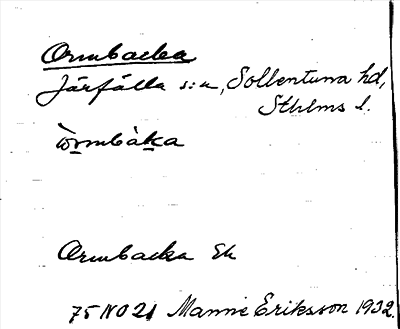 Ormbacka
Järfälla s:n, Sollentuna hd,
Sthlms l.
Ormbacka Ek
75 NO 21 Manne Eriksson 1932.